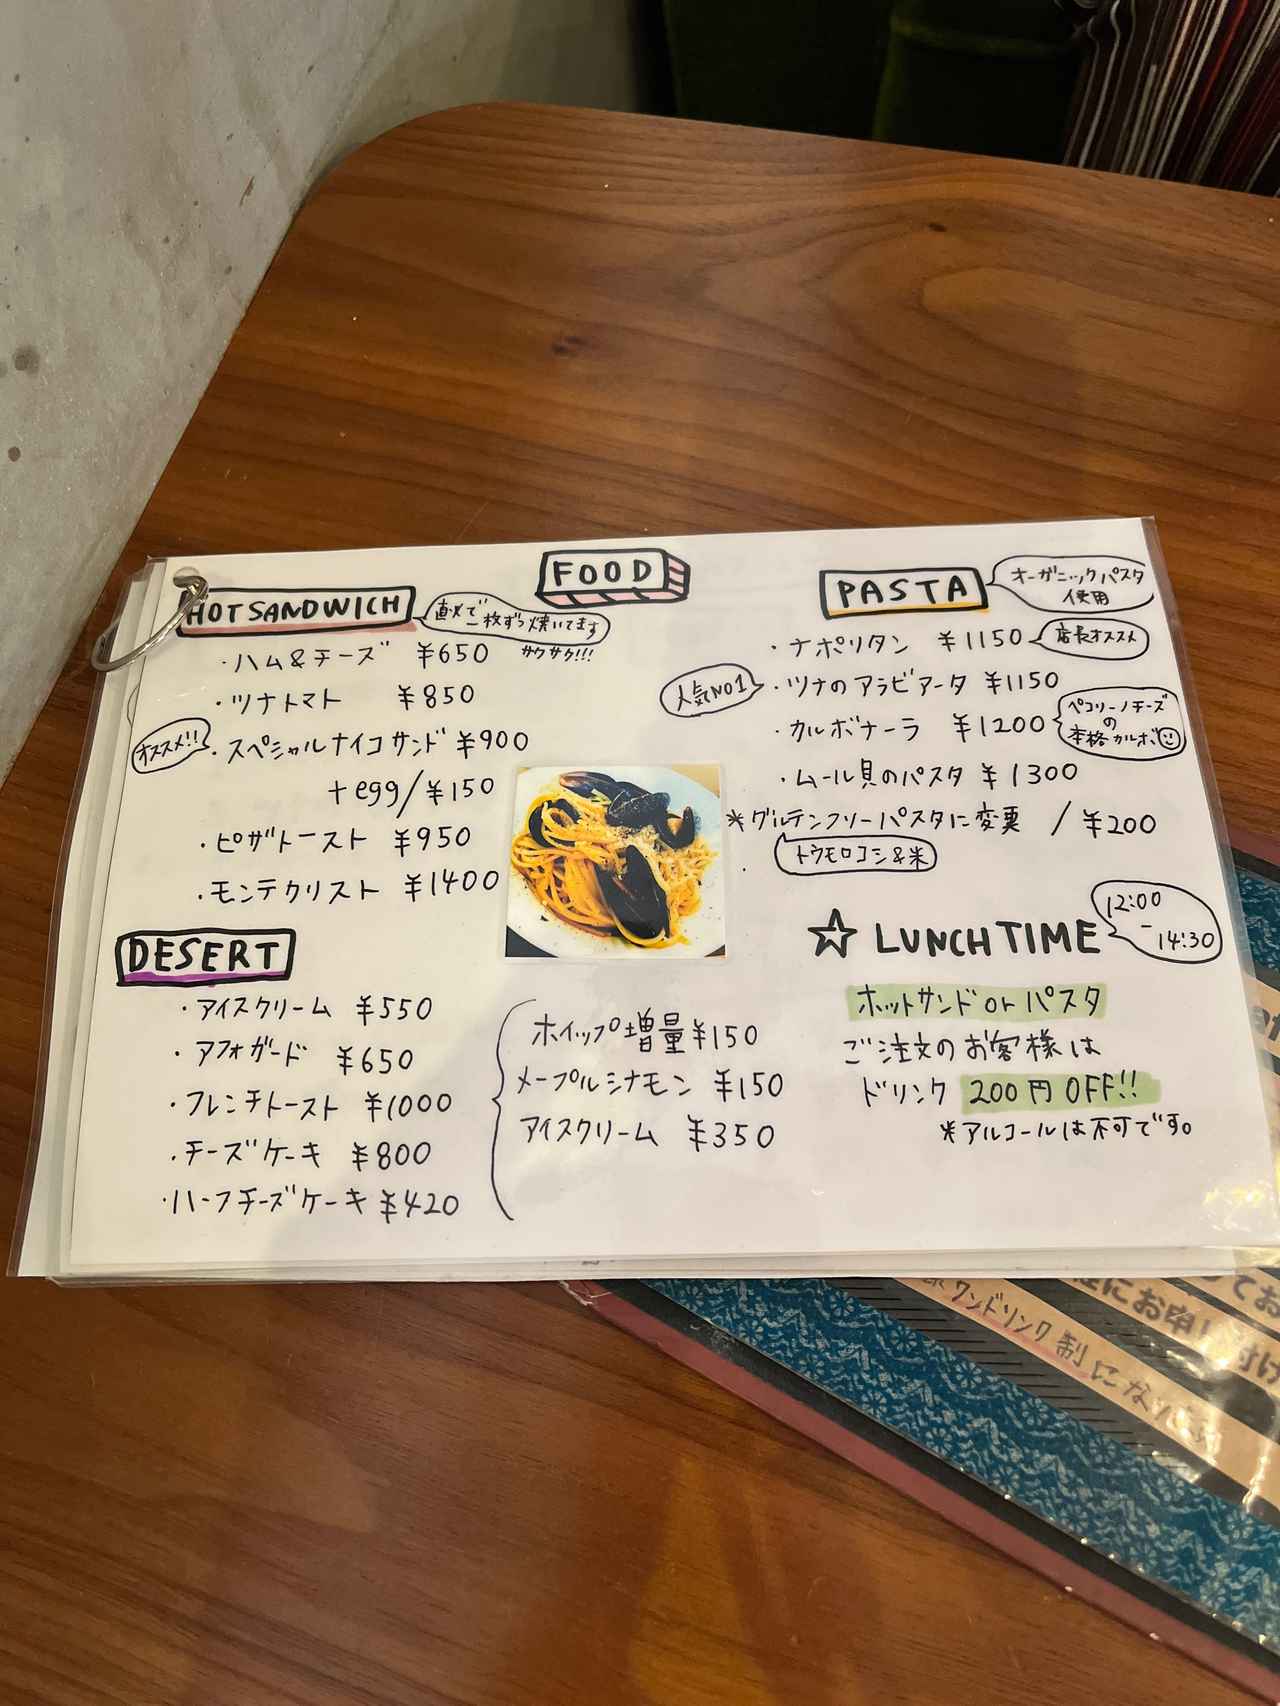 FOOD
HOT SANDWICH
直火で
一枚ずつ焼いてます
サクサク!!!
・ハム&チーズ ¥650
・ツナトマト ¥850
オススメ!!
・スペシャルナイコサンド ¥900
+egg/¥150
・ピザトースト ¥950
・モンテクリスト ¥1400
DESERT
・アイスクリーム ¥550
・アフォガード ¥650
・フレンチトースト ¥1000
・チーズケーキ ¥800
・ハーフチーズケーキ ¥420
ホイップ増量 ¥150
メープルシナモン ¥150
アイスクリーム ¥350
PASTA
オーガニックパスタ
使用
・ナポリタン ¥1150
店長オススメ
人気NO1
・ツナのアラビアータ ¥1150
・カルボナーラ ¥1200
ペコリーノチーズ
の
本格カルボ
・ムール貝のパスタ ¥1300
*グルテンフリーパスタに変更 / ¥200
トウモロコシ&米
☆ LUNCH TIME
12:00
-
14:30
ホットサンド or パスタ
ご注文のお客様は
ドリンク 200円 OFF!!
*アルコールは不可です。
にお申し付け
ワンドリンク制にな